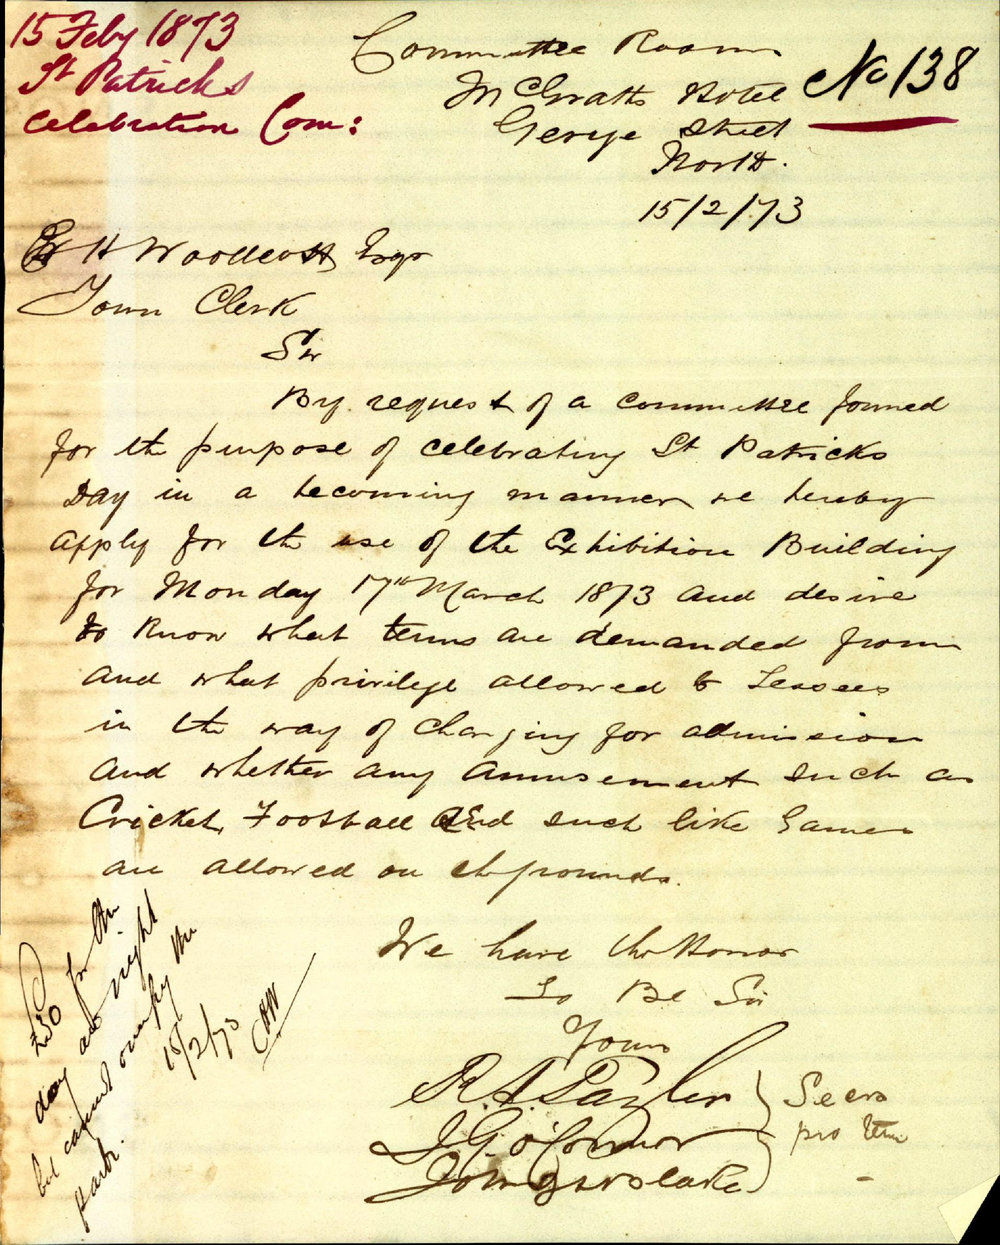 15 Feby 1873
St Patricks
Celebration Com:
No 138
Committee Room
McGraths Hotel
George Street
North.
15/2/73
H Woolcott Esqr
Town Clerk
Sir
By request of a committee formed
for the purpose of celebrating St Patricks
Day in a becoming manner we hereby
apply for the use of the Exhibition Building
for Monday 17th March 1873 and desire
to know what terms are demanded from
and what privilege allowed to Lessees
in the way of charging for admission
and whether any amusement such as
Cricket, Football and such like Games
are allowed on the grounds.
We have the Honor
To Be Sir
Yours
R. A. Taylor
J G O'Connor
John
Secrs
pro tem
£30 for the
day and night
but cannot occupy the
park.
15/2/73